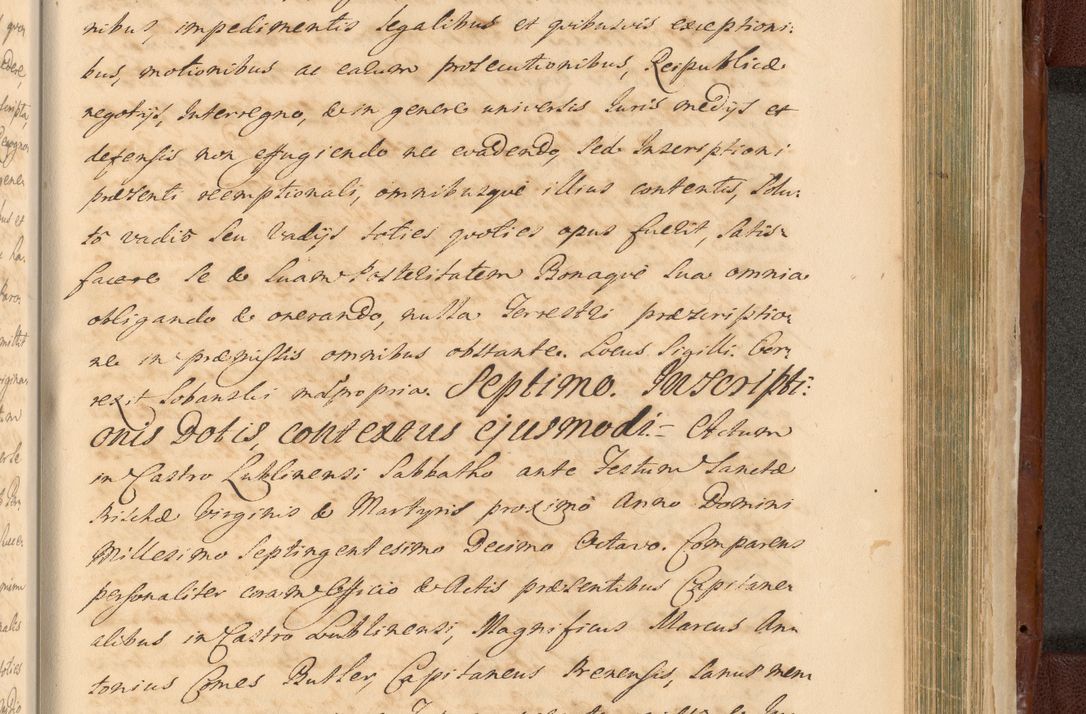 nibus, impedimentis legalibus et quibusvis exceptioni:
bus, motionibus ac earum prosecutionibus, Reipublicæ
negotijs, Interregno, & in genere universis Iuris medijs et
defensis non effugiendo nec evadendo, Sed Inscriptioni
præsenti reemptionali, omnibusque illius contentis, Solu:
to vadio seu vadijs toties quoties opus fuerit, Satis:
facere se & suam Posteritatem Bonaque sua omnia
obligando & onerando, nulla Terrestri præscriptio:
ne in præmissis omnibus obstante. Locus Sigilli. Cor:
rexit Sobanski mñ propria. Septimo. Inscripti:
onis Dotis, contextus ejusmodi.= Actum
in Castro Lublinensi Sabbatho ante Festum Sanctæ
Priscæ Virginis & Martyris proximo Anno Domini
Millesimo Septingentesimo Decimo Octavo. Comparens
personaliter coram Officio & Actis præsentibus Capitane:
alibus in Castro Lublinensi, Magnificus Marcus An:
tonius Comes Butler, Capitaneus Prenensis, Sanus men: